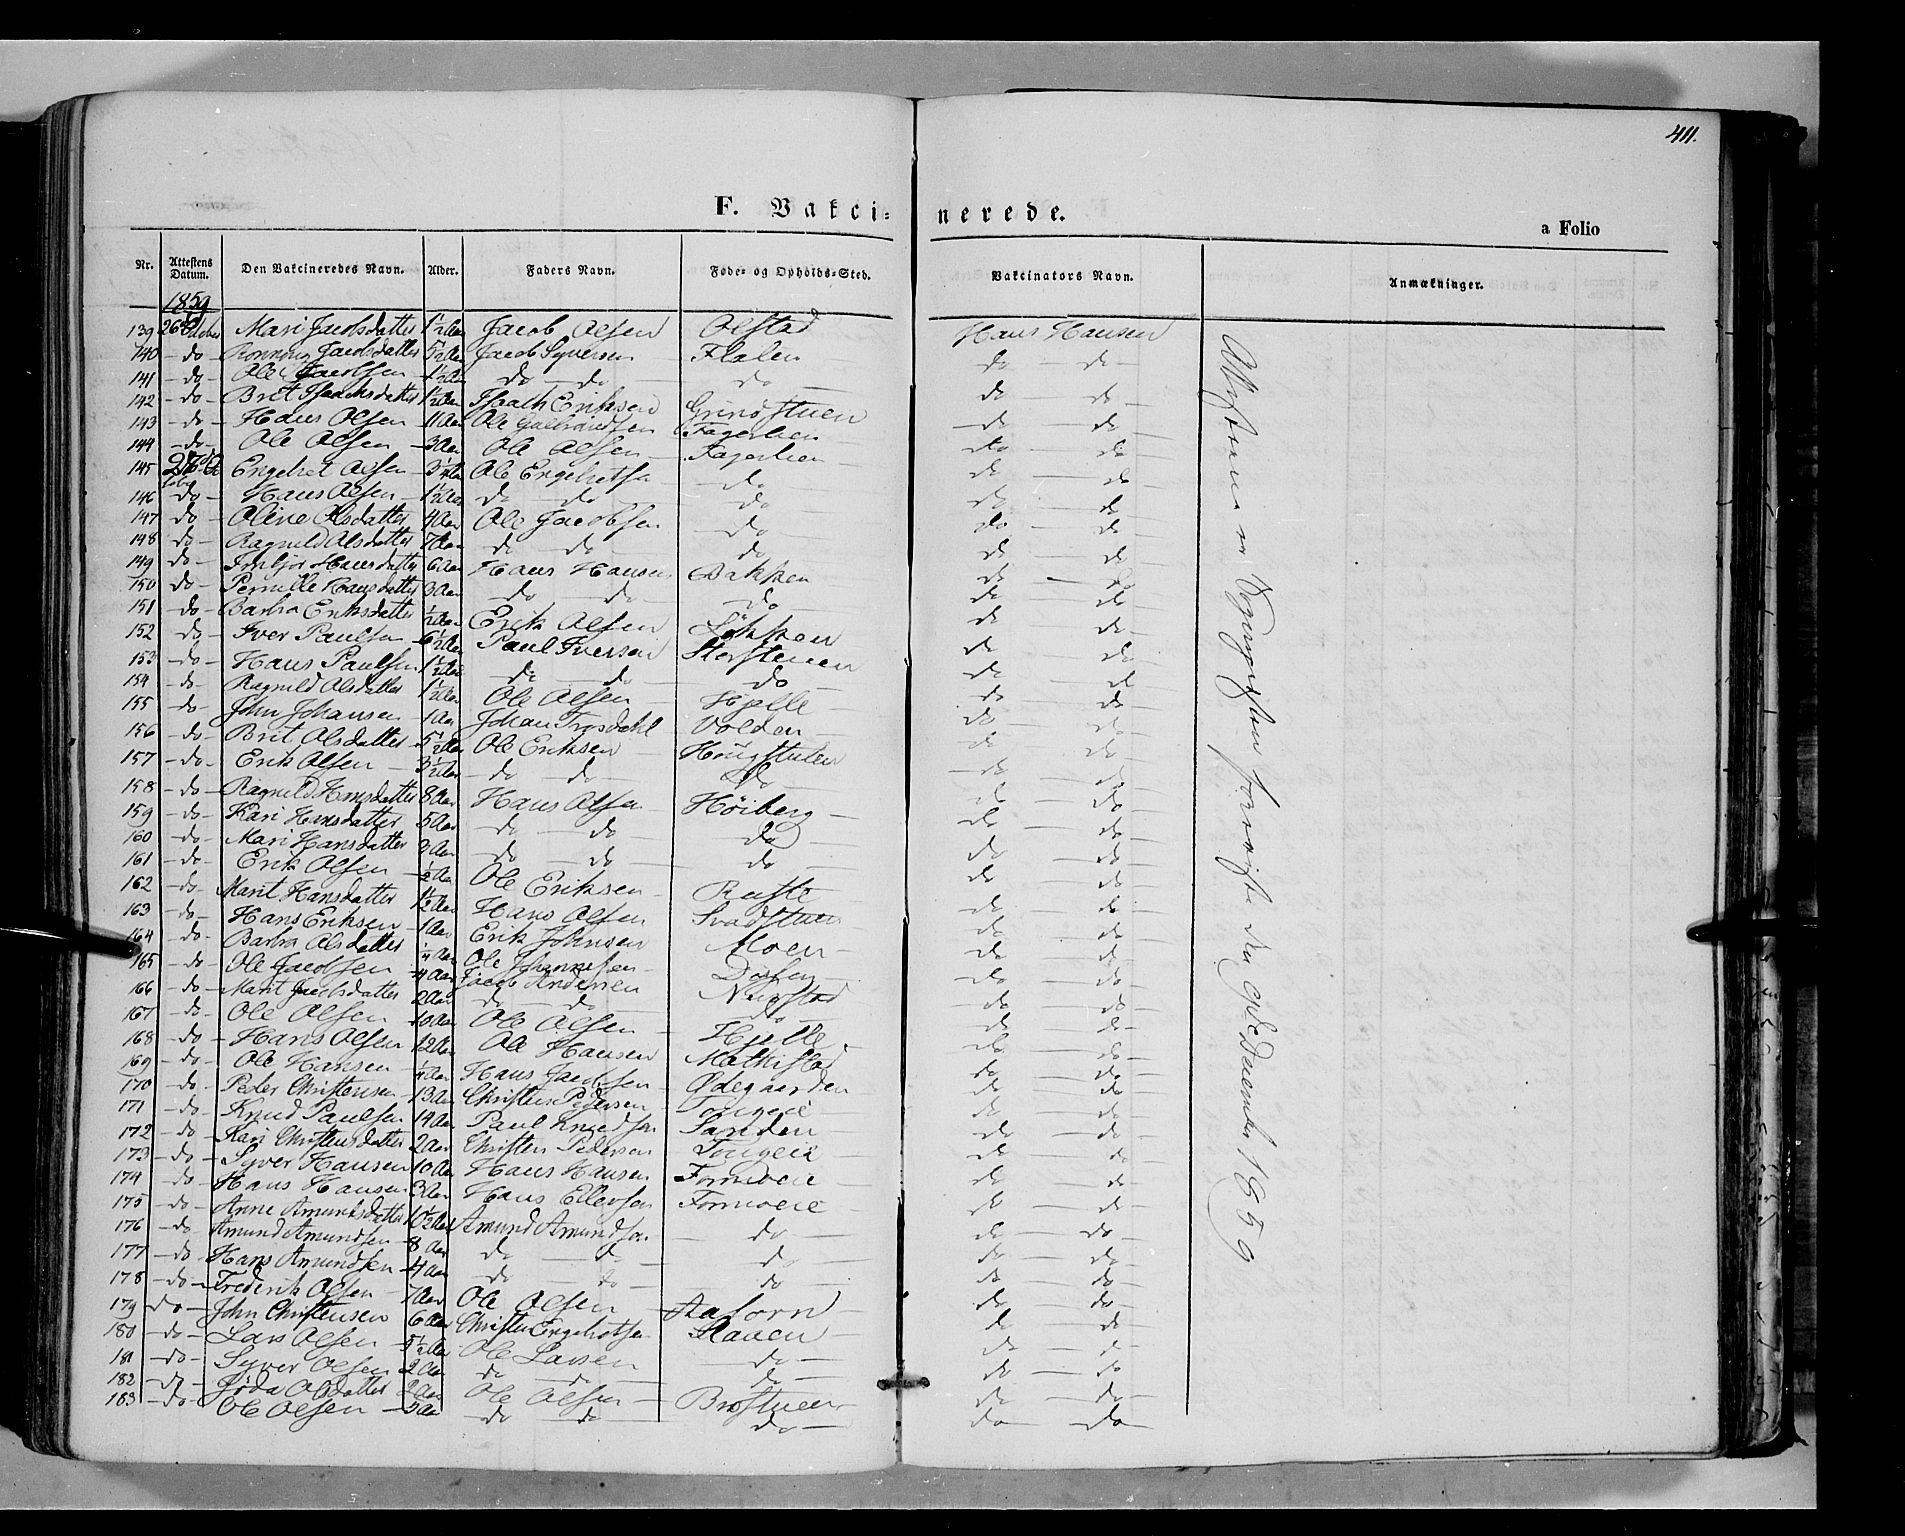 411.
F. Vakcinerede.
a Folio
Nr. Attestens Datum. Den Vakcineredes Navn. Alder. Faders Navn. Føde- og Opholds-Sted. Vakcinators Navn. Anmærkninger.
1859
139 26 Mari Jacobsdatter 1½ Aar Jacob Olsen Olstad Hans Hansen
140 do Ronnoug Jacobsdatter 5½ Aar Jacob Syversen Flaten do do
141 do Ole Jacobsen 1½ Aar do do do do do
142 do Brit Isaachsdatter 1½ Aar Isaach Eriksen Grindstuen do do
143 do Hans Olsen 11 Aar Ole Gulbrandsen Fagerlien do do
144 do Ole Olsen 3 Aar Ole Olsen Fagerlien do do
145 27 Engebret Olsen Ole Engebretsen do do do
146 do Hans Olsen 1½ Aar do do do do do
147 do Oline Olsdatter 4 Aar Ole Jacobsen do do do
148 do Ragnild Olsdatter 7 Aar do do do do do
149 do Hansdatter 6 Aar Hans Hansen Bakken do do
150 do Pernille Hansdatter 3 Aar do do do do do
151 do Barbra Eriksdatter ½ Aar Erik Olsen Løkken do do
152 do Iver Paulsen 6½ Aar Paul Iversen Storstuen do do
153 do Hans Paulsen 1½ Aar do do do do do
154 do Ragnild Olsdatter 1½ Aar Ole Olsen Hjelle do do
155 do John Johansen 1 Aar Johan Volden do do
156 do Brit Olsdatter 5½ Aar Ole Eriksen Hougstulen do do
157 do Erik Olsen 3½ Aar do do do do do
158 do Ragnild Hansdatter 8 Aar Hans Olsen Høiberg do do
159 do Kari Hansdatter 5 Aar do do do do do
160 do Mari Hansdatter 3 Aar do do do do do
161 do Erik Olsen ½ Aar Ole Eriksen Ruste do do
162 do Marit Hansdatter 1½ Aar Hans Olsen Svadstuen do do
163 do Hans Eriksen 1 Aar Erik Johnsen Moen do do
164 do Barbra Olsdatter Ole Johannesen do do
165 do Ole Jacobsen 4 Aar Jacob Andersen do do
166 do Marit Jacobsdatter 2 Aar do do do do do
167 do Ole Olsen 10 Aar Ole Olsen Hjelle do do
168 do Hans Olsen 12 Aar Ole Hansen do do
169 do Ole Hansen Hans Jacobsen Ødegaarden do do
170 do Peder Christensen 13 Aar Christen Pedersen Tougeie do do
171 do Knud Paulsen 14 Aar Paul Knudsen Sanden do do
172 do Kari Christensdatter 2 Aar Christen Pedersen Tougeie do do
173 do Syver Hansen 10 Aar Hans Hansen Formoeie do do
174 do Hans Hansen 3 Aar Hans Ellevsen Formoeie do do
175 do Anne Amundsdatter 10½ Aar Amund Amundsen do do do
176 do Amund Amundsen 8 Aar do do do do do
177 do Hans Amundsen 4 Aar do do do do do
178 do Frederik Olsen 7 Aar Ole Olsen Staborn do do
179 do John Christensen 6 Aar Christen Engebretsen Hauen do do
180 do Lars Olsen 5½ Aar Ole Larsen do do do
181 do Syver Olsen 2 Aar do do do do do
182 do Jøda Olsdatter 2 Aar Ole Olsen Brostuen do do
183 do Ole Olsen 5 Aar do do do do do
Afskrivten Vogngiften forevist den December 1859